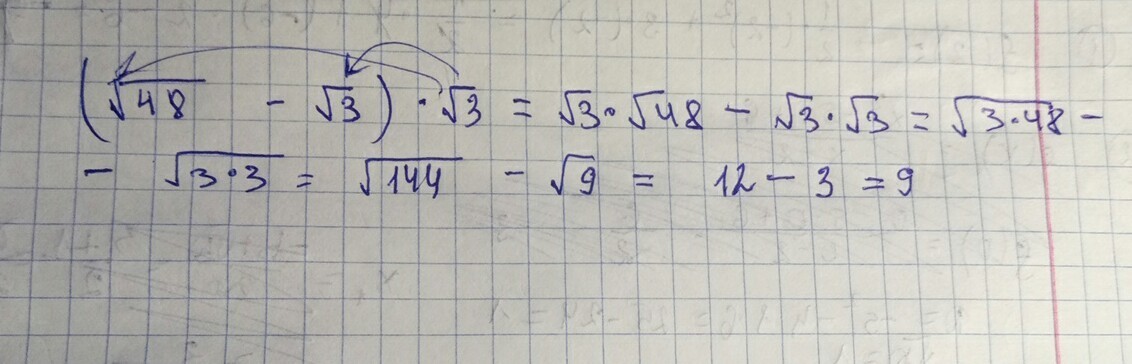 (√48 - √3) · √3 = √3 · √48 - √3 · √3 = √(3·48) -
- √(3·3) = √144 - √9 = 12 - 3 = 9